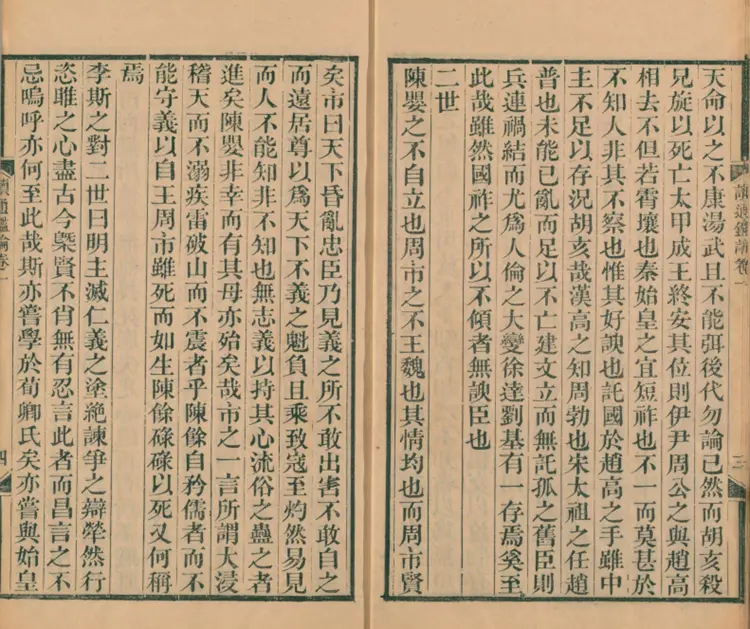 讀通鑑論卷一
三
天命以之不康湯武且不能弭後代勿論已然而胡亥殺
兄旋以死亡太甲成王終安其位則伊尹周公之與趙高
相去不但若霄壤也秦始皇之宜短祚也不一而莫甚於
不知人非其不察也惟其好諛也託國於趙高之手雖中
主不足以存況胡亥哉漢高之知周勃也宋太祖之任趙
普也未能已亂而足以不亡建文立而無託孤之舊臣則
兵連禍結而尤爲人倫之大變徐達劉基有一存焉奚至
此哉雖然國祚之所以不傾者無諛臣也
二世
陳嬰之不自立也周市之不王魏也其情均也而周市賢
矣市曰天下昏亂忠臣乃見義之所不敢出害不敢自之
而遠居尊以爲天下不義之魁負且乘致寇至灼然易見
而人不能知非不知也無志義以持其心流俗之蠱之者
進矣陳嬰非幸而有其母亦殆矣哉市之一言所謂大浸
稽天而不溺疾雷破山而不震者乎陳餘自矜儒者而不
能守義以自王周市雖死而如生陳餘碌碌以死又何稱
焉
李斯之對二世曰明主滅仁義之塗絕諫爭之辯犖然行
恣睢之心盡古今槩賢不肖無有忍言此者而昌言之不
忌嗚呼亦何至此哉斯亦嘗學於荀卿氏矣亦嘗與始皇
讀通鑑論卷一
四